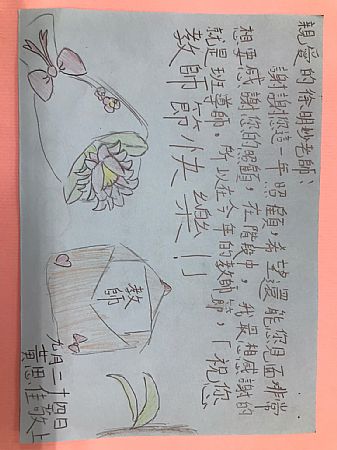 親愛的徐明妙老師：
謝謝您這一年照顧，希望還能您見面非常
想要感謝您的照顧，在階段中，我最想感謝的
就是班導師。所以在今年的教師節，「祝您
教師節快樂！」
教師
黃思佳敬上